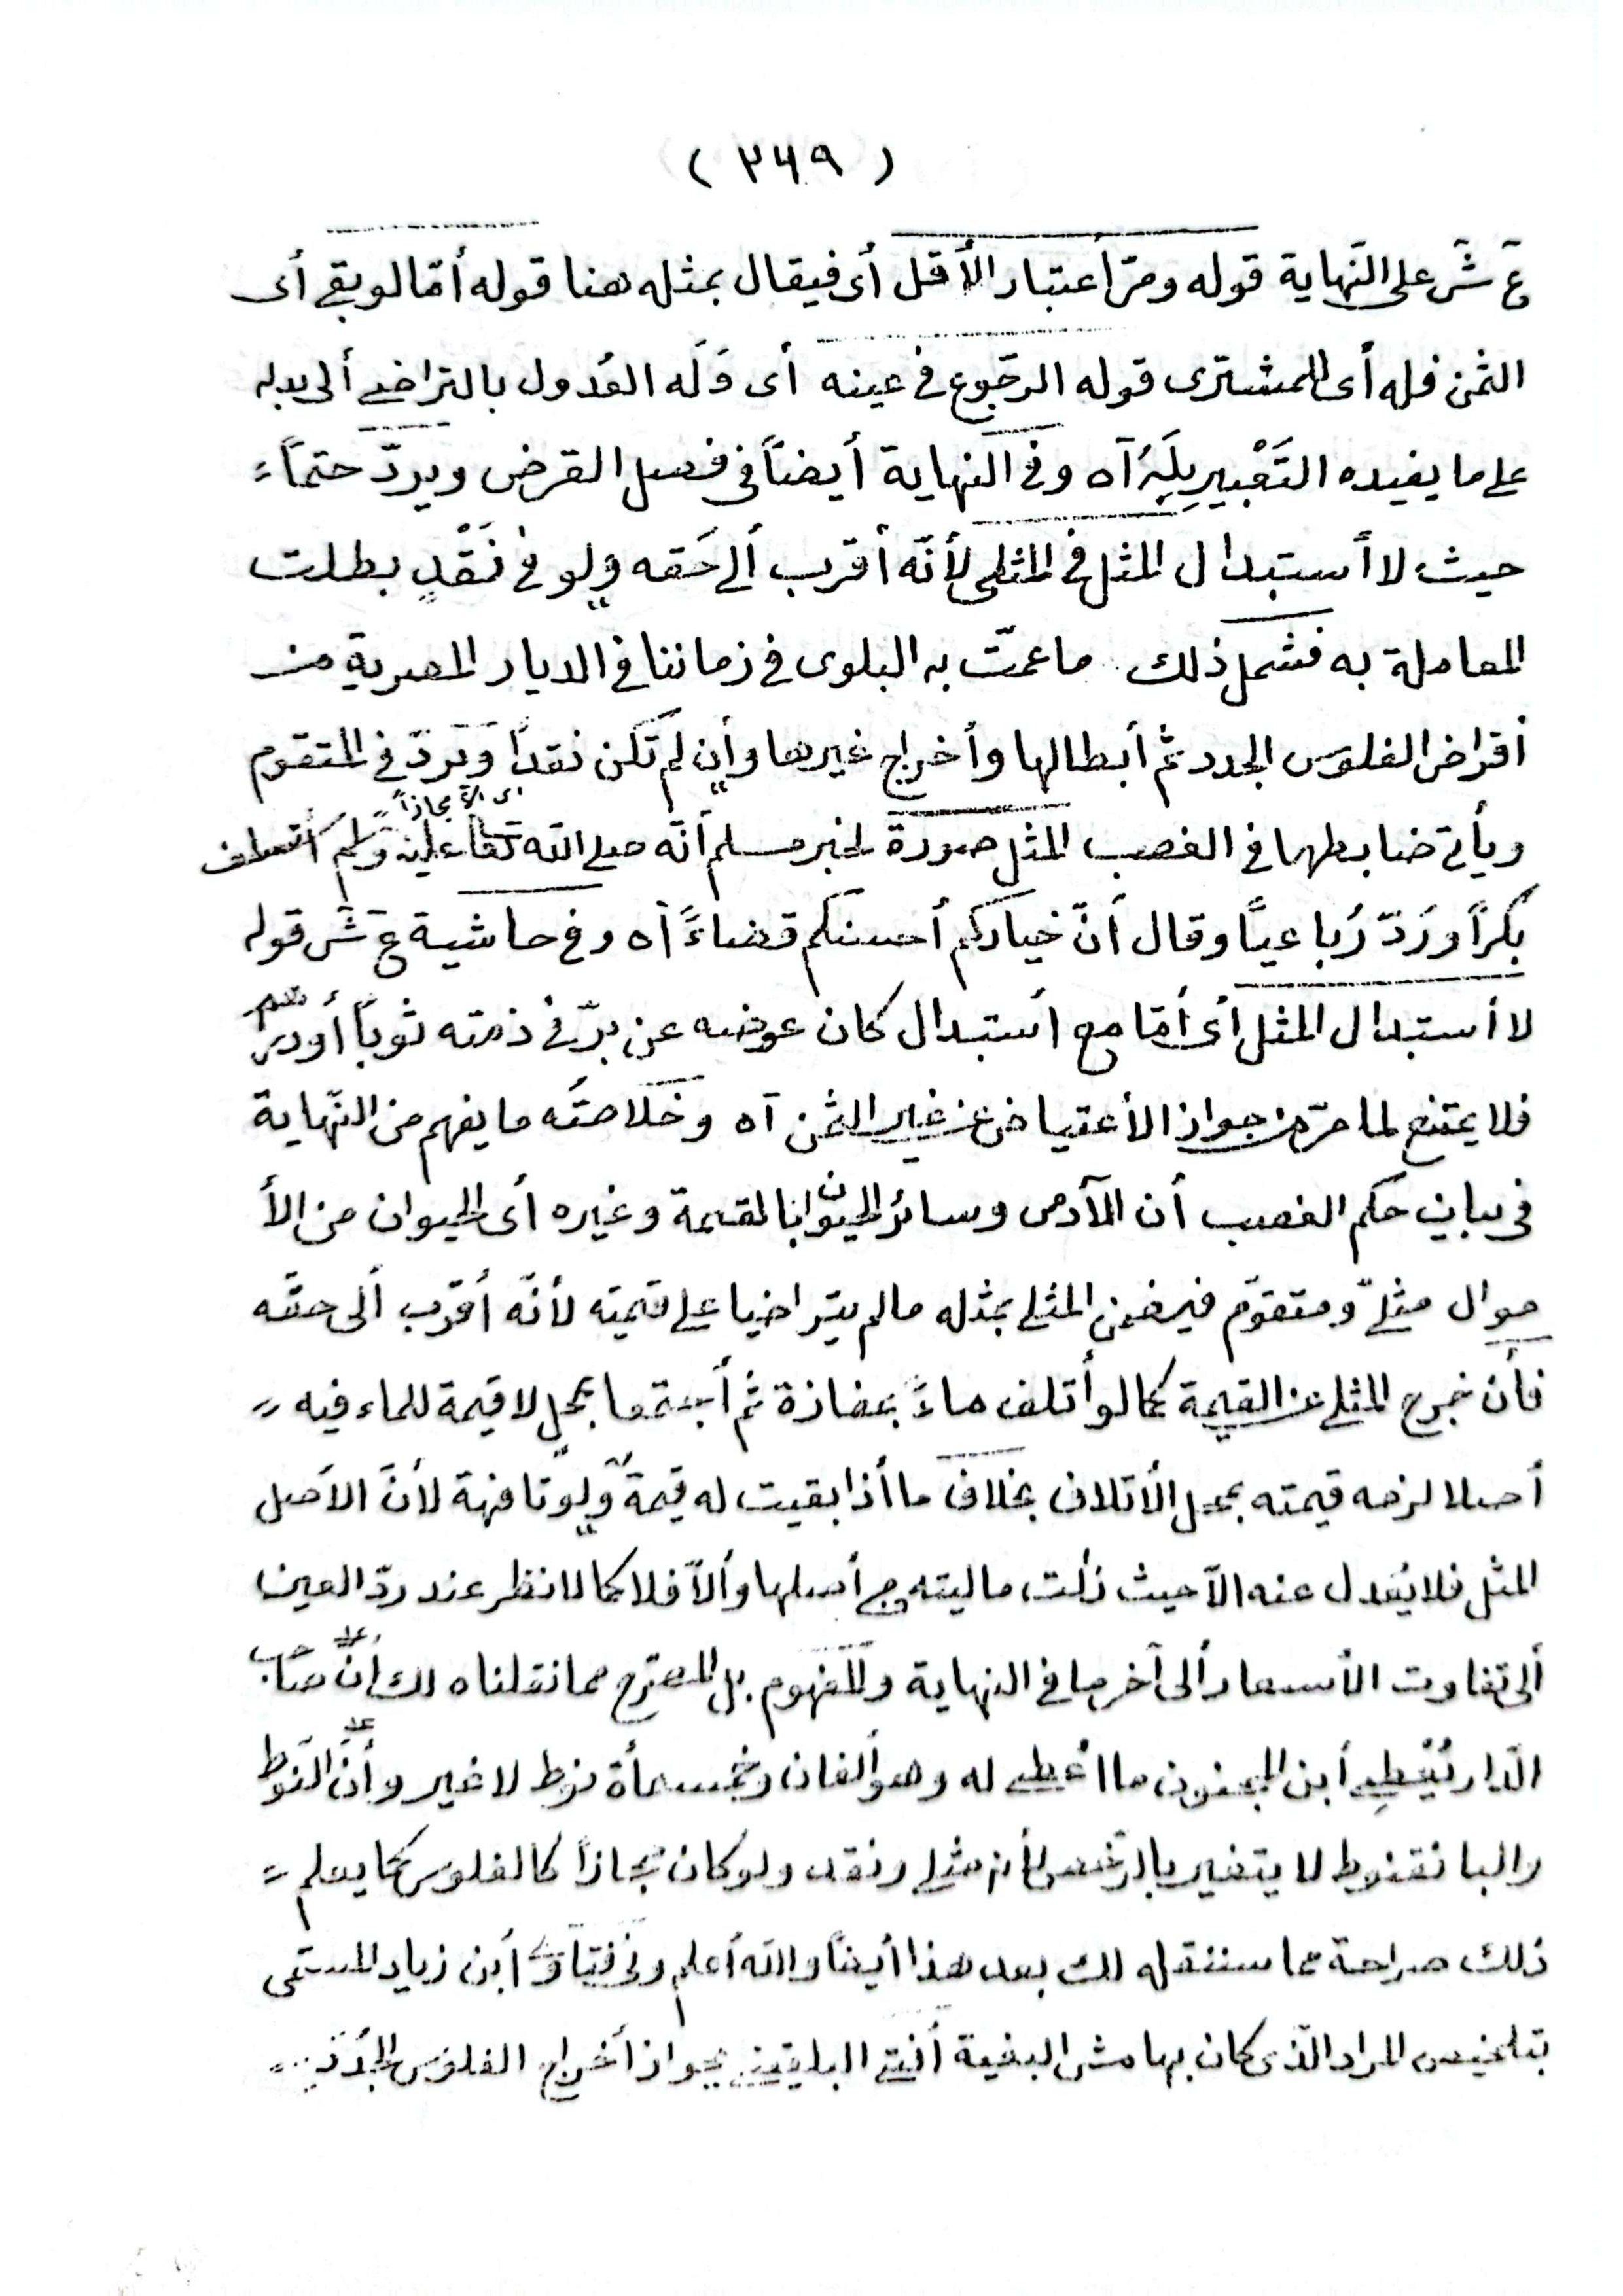 ( ٢٤٩ )
ع ش على النّهاية قوله ومرّ أعتبار الأقل أى فيقال بمثله هنا قوله أمّا لو بقى أى
الثمن فله أى المشترى قوله الرجّوع فى عينه أى وَلَه العُدول بالتراضى ألى بدله
على ما يفيده التَعْبير بِلَهُ آه وفى النهاية أيضاً فى فصل القرض ويردّ حتماً
حيث لا أستبدال المثل فى المثلى لأنّه أقرب ألى حَقه ولو فى نَقْدٍ بطلت
المعاملة به فشمل ذلك ما عمّت به البلوى فى زماننا فى الديار المصرية من
أقراض الفلوس الجدد ثم أبطالها وأخراج غيرها وأن لم تكن نقداً وَيَردّ فى المتقوم
أى ألا مجازاً
ويأتى ضابطهما فى الغصب المثل صورة لخبر مسلم أنّه صلى الله تعا عليه وسلم أقتطف
بَكراً وَرَدّ رُباعياً وقال أنّ خياركم أحسنكم قضاءً آه وفى حاشية ع ش قوله
لا أستبدال المثل أى أمّا مع أستبدال كان عوضه عن برّ فى ذمته ثوباً أو دراهم
فلا يمتنع لما مرّ من جواز الأعتياض عن غير الثمن آه وخلاصته ما يفهم من النّهاية
فى بيان حكم الغصب أن الآدمى وسائر الحيوان بالقيمة وغيره أى الحيوان من الأ
موال مثلىّ ومتقوّم فيضمن المثلى بمثله ما لم يتراضيا على قيمته لأنّه أقرب ألى حقّه
فأن خرج المثلى عن القيمة كما لو أتلف ماءً بمفازة ثم أجتمعا بمحل لا قيمة للماء فيه
أصلا لزمه قيمته بمحل الأتلاف بخلاف ما أذا بقيت له قيمة ولو تافهة لأنّ الأصل
المثل فلا يُعدل عنه الاّ حيث زالت ماليته من أصلها وألاّ فلا كما لا نظر عند ردّ العين
ألى تفاوت الأسعار ألى آخر ما فى النهاية والمفهوم بل المصرّح مما نقلناه لك أنّ صاحب
الدّار يُعْطِى أبن المجنون ما اعْطى له وهو ألفان وخمسمأة نوط لا غير وأنّ النّوط
والبانقنوط لا يتغير بالرّخص لأنه مثلى ونقد ولو كان مجازاً كالفلوس كما يعلم
ذلك صراحة مما سننقله لك بعد هذا أيضاً والله أعلم وفى فتاوى أبن زياد المسمّى
بتلخيص المراد الّذى كان بهامش البغية أفتى البلقينى بجواز أخراج الفلوس الجُدُد